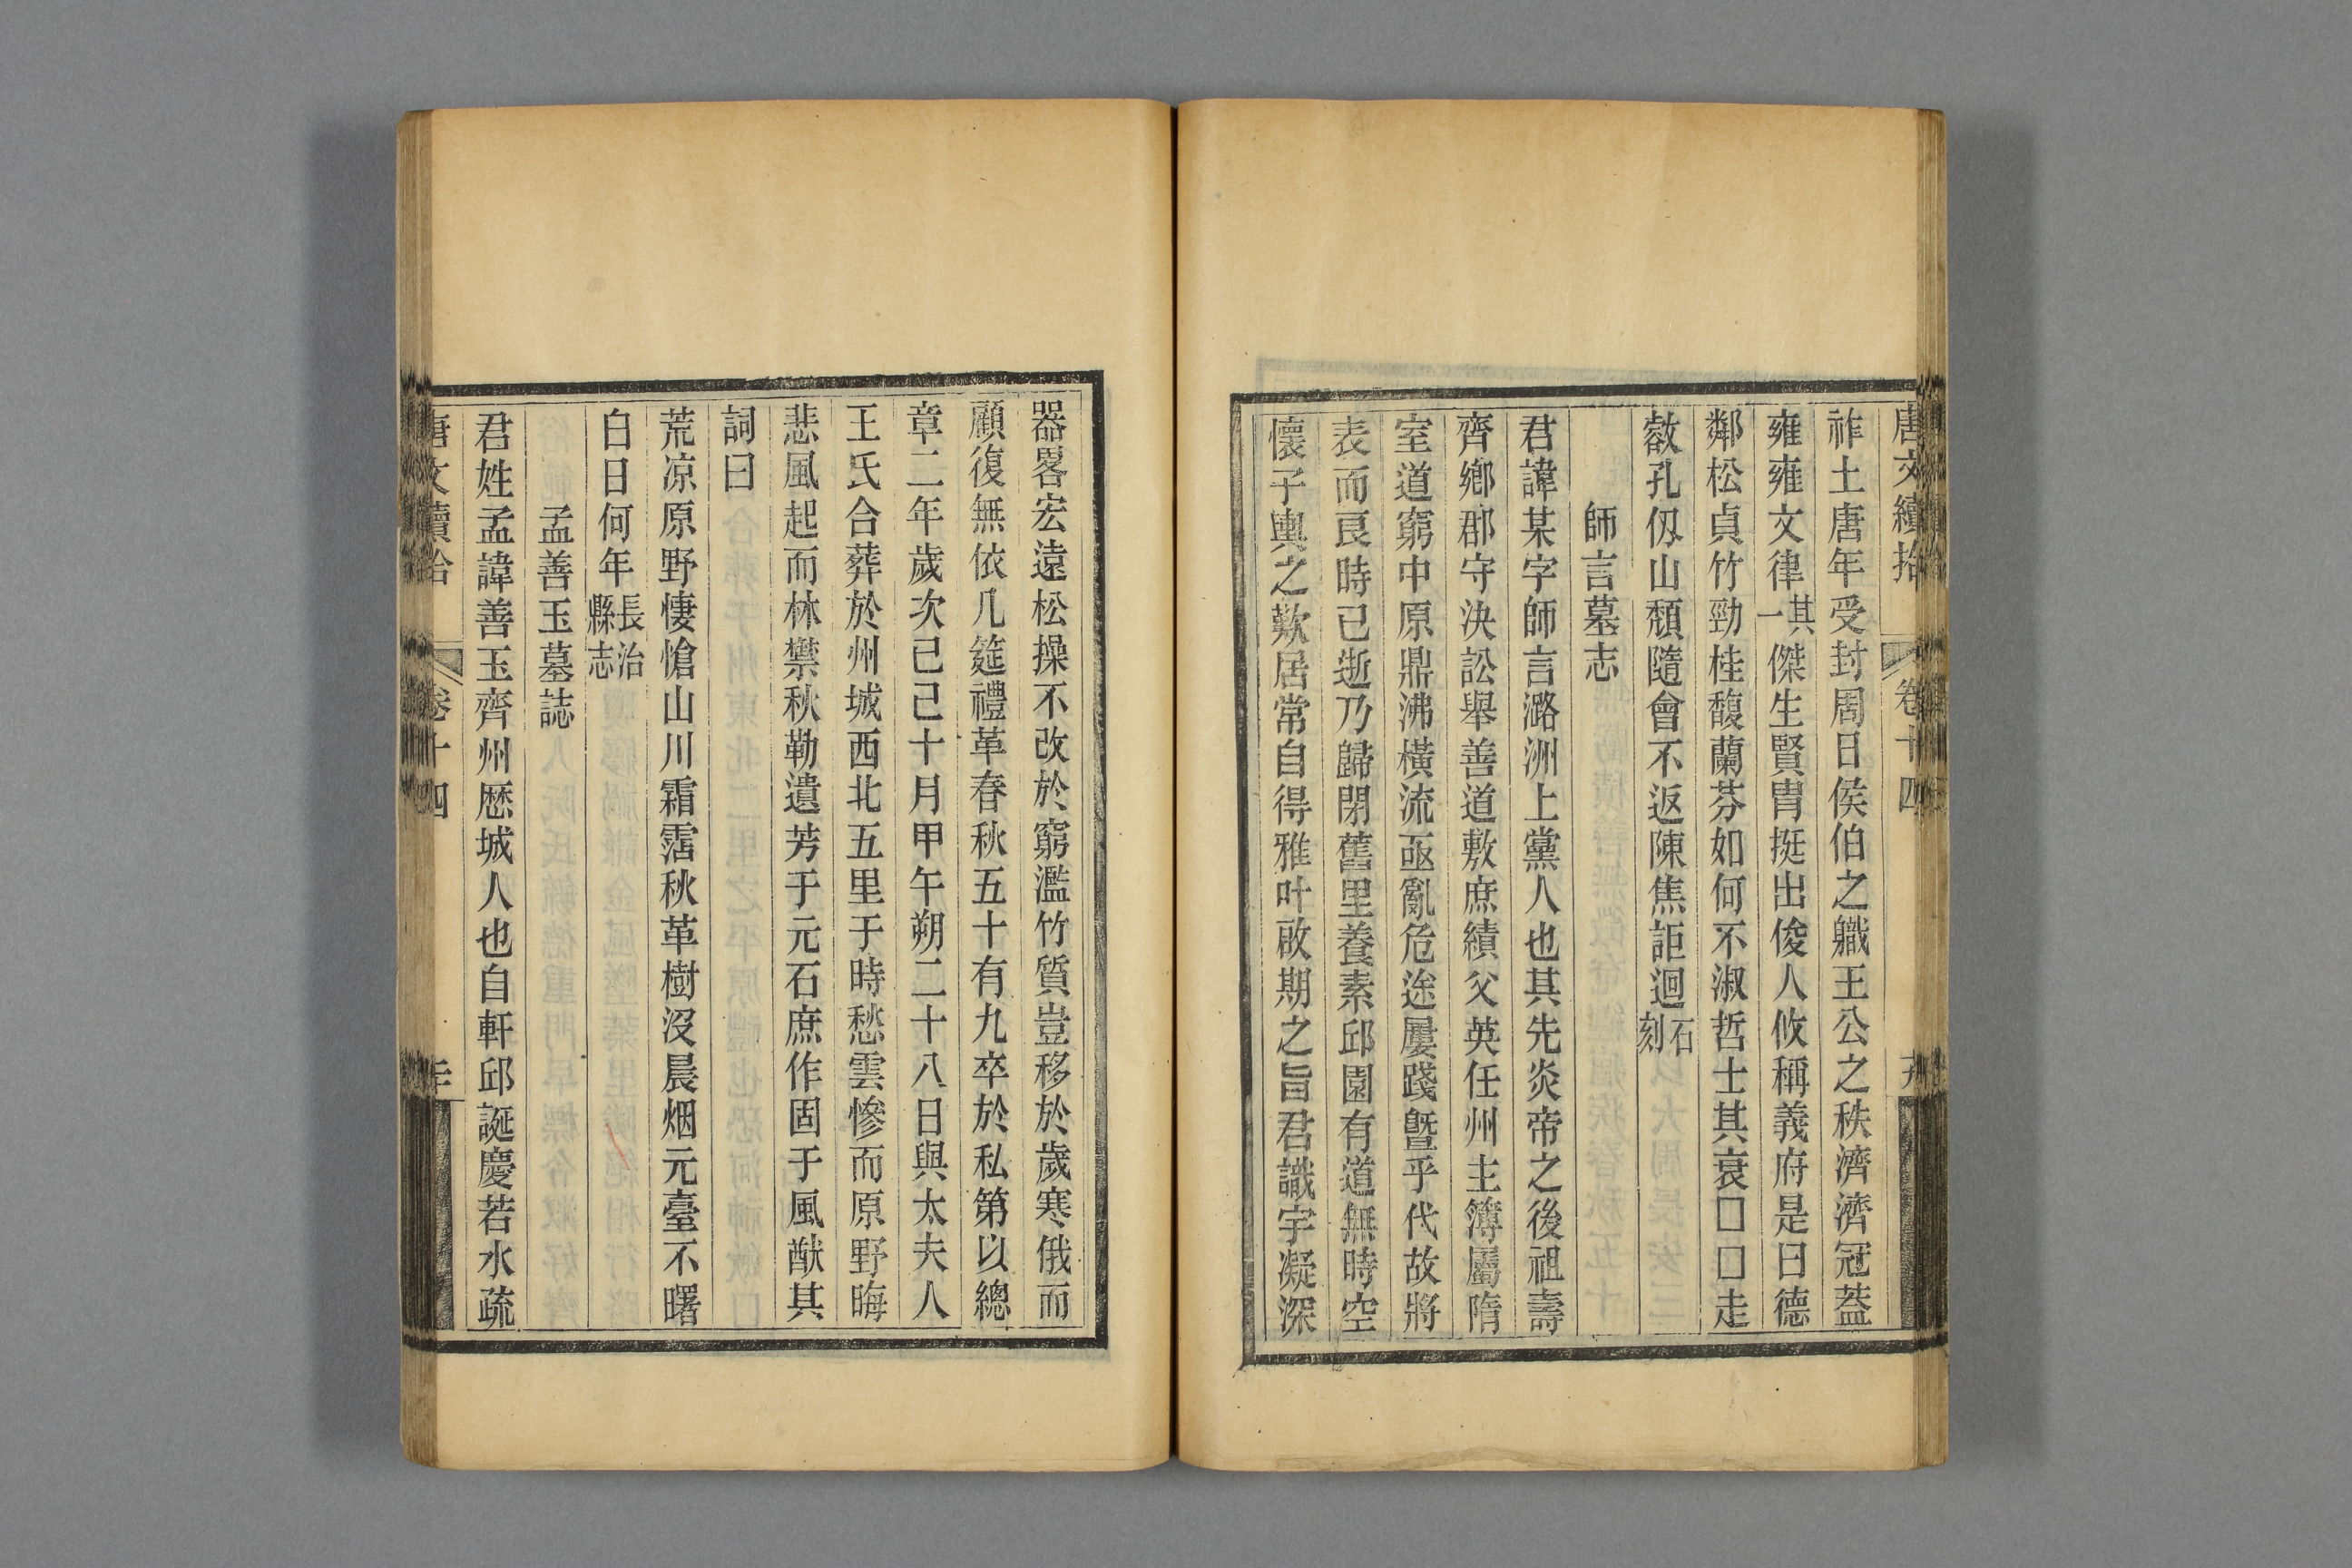 唐文續拾 卷十四
祚土唐年受封周日侯伯之職王公之秩濟濟冠葢
雍雍文律其一傑生賢胄挺出俊人攸稱義府是曰德
鄰松貞竹勁桂馥蘭芬如何不淑哲士其衰□□走
毂孔仭山頽隨會不返陳焦詎迴石刻
師言墓志
君諱某字師言潞洲上黨人也其先炎帝之後祖壽
齊鄉郡守決訟舉善道敷庶績父英任州主簿屬隋
室道窮中原鼎沸橫流亟亂危途屢踐曁乎代故將
表而良時已逝乃歸閉舊里養素邱園有道無時空
懷子輿之歎居常自得雅叶啟期之旨君識宇凝深
器畧宏遠松操不改於窮濫竹質豈移於歲寒俄而
顧復無依几筵禮革春秋五十有九卒於私第以總
章二年歲次己巳十月甲午朔二十八日與太夫人
王氏合葬於州城西北五里于時愁雲慘而原野晦
悲風起而林禁秋勒遺芳于元石庶作固于風猷其
詞曰
荒凉原野悽愴山川霜霑秋革樹沒晨烟元臺不曙
白日何年長治縣志
孟善玉墓誌
君姓孟諱善玉齊州厯城人也自軒邱誕慶若水疏
唐文續拾 卷十四